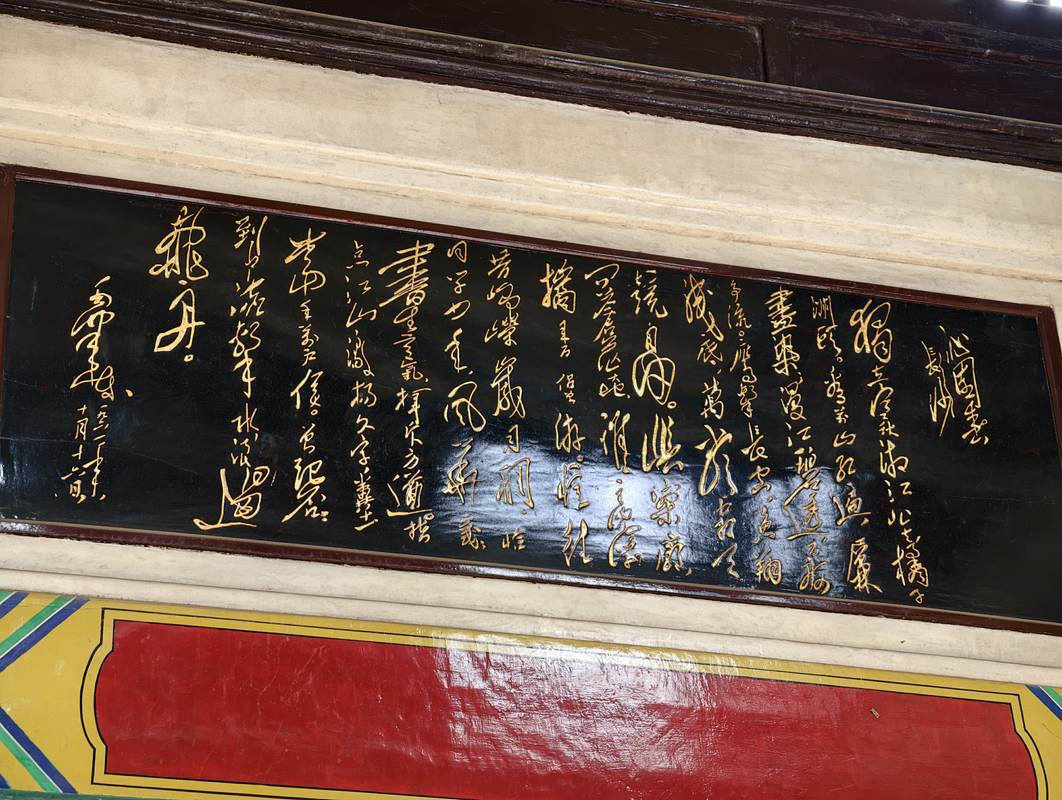 沁园春
长沙
独立寒秋湘江北去橘子
洲頭。看万山红遍層林
盡染漫江碧透百舸
争流。鹰擊长空鱼翔
浅底。萬類霜天
競自由。悵寥廓
问苍茫大地誰主沉浮
攜来百侣曾游。憶往
昔峥嶸歲月稠恰
同学少年風華茂
書生意氣揮斥方遒指
点江山激扬文字糞土
當年万户侯。曾記否
到中流擊水浪遏
飛舟。
毛泽东
一九六一年
十月十六日